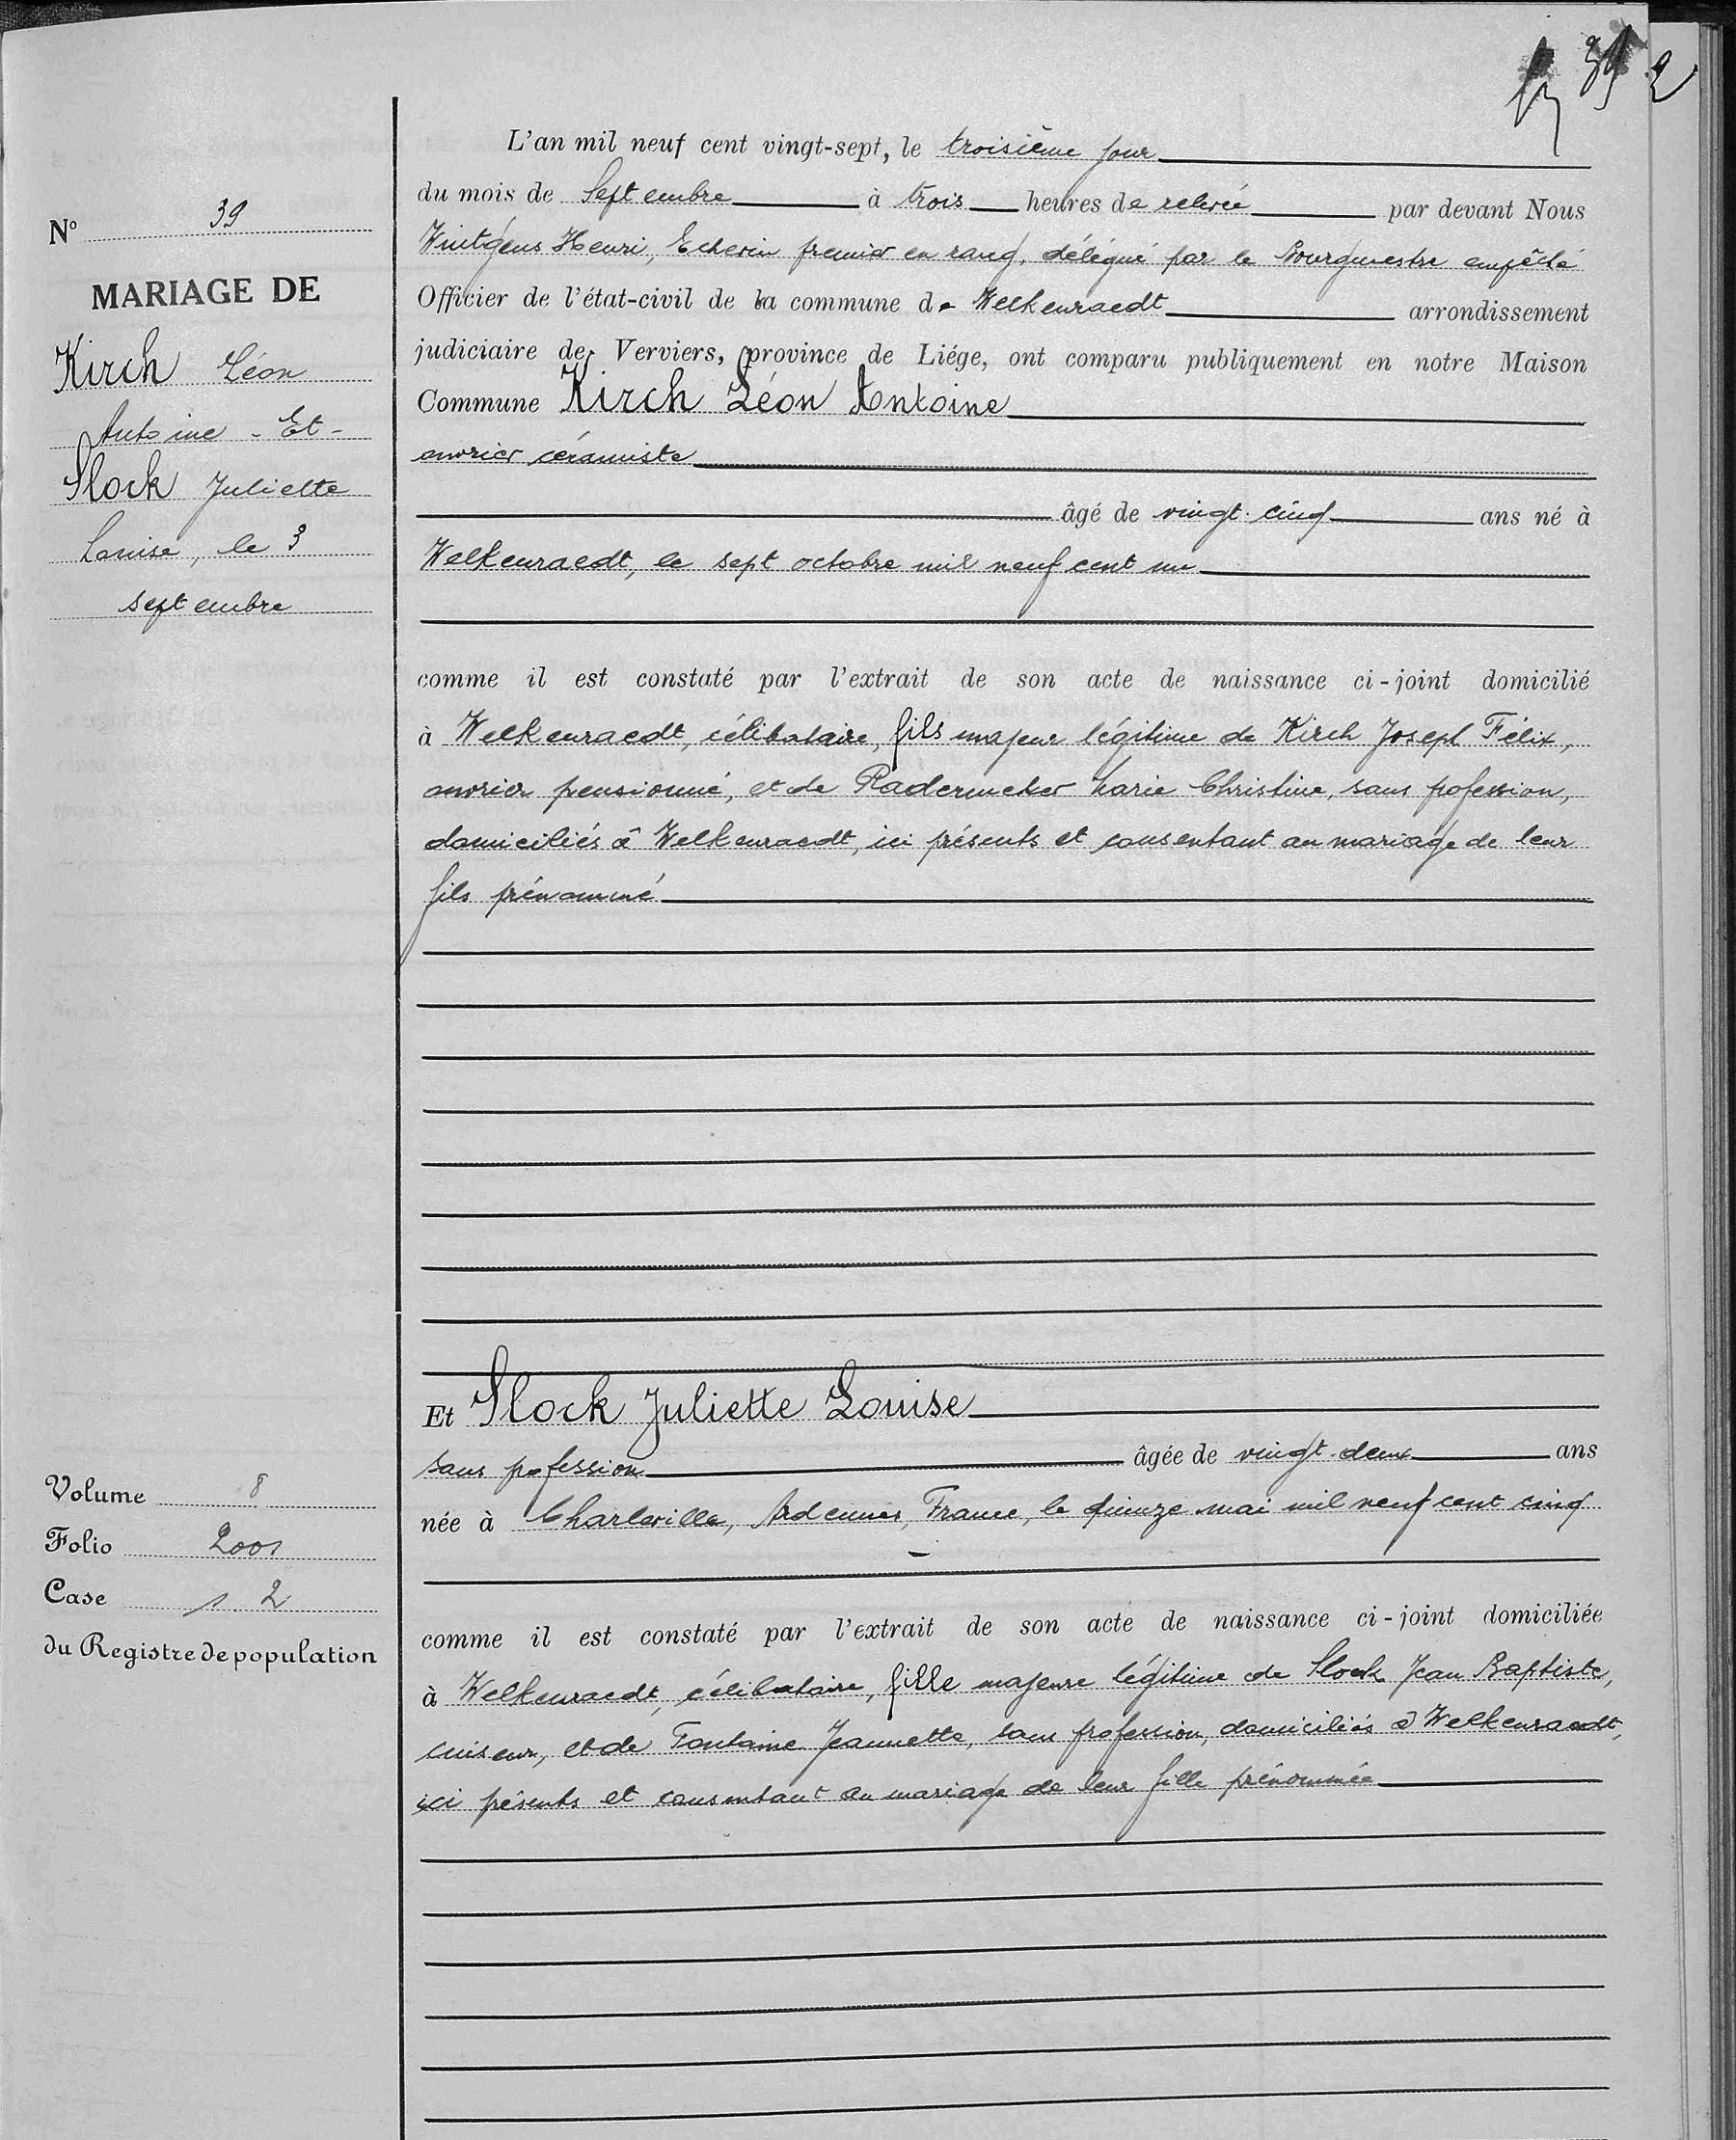 39 2
L'an mil neuf cent vingt-sept, le troisième jour
du mois de Septembre à trois heures de relevée par devant Nous
Wintgens Henri, Echevin premier en rang, délégué par le Bourgmestre empêché
Officier de l'état-civil de la commune de Welkenraedt arrondissement
judiciaire de Verviers, province de Liége, ont comparu publiquement en notre Maison
Commune Kirch Léon Antoine
ouvrier céramiste
âgé de vingt-cinq ans né à
Welkenraedt, le sept octobre mil neuf cent un
comme il est constaté par l'extrait de son acte de naissance ci-joint domicilié
à Welkenraedt, célibataire, fils majeur légitime de Kirch Joseph Félix,
ouvrier pensionné, et de Radermeker Marie Christine, sans profession,
domiciliés à Welkenraedt, ici présents et consentant au mariage de leur
fils prénommé
Et Slock Juliette Louise
sans profession âgée de vingt-deux ans
née à Charleville, Ardennes, France, le quinze mai mil neuf cent cinq
comme il est constaté par l'extrait de son acte de naissance ci-joint domiciliée
à Welkenraedt, célibataire, fille majeure légitime de Slock Jean Baptiste,
cuiseur, et de Fontaine Jeannette, sans profession, domiciliés à Welkenraedt,
ici présents et consentant au mariage de leur fille prénommée
N° 39
MARIAGE DE
Kirch Léon
Antoine - Et -
Slock Juliette
Louise, le 3
septembre
Volume 8
Folio 2001
Case 1. 2
du Registre de population